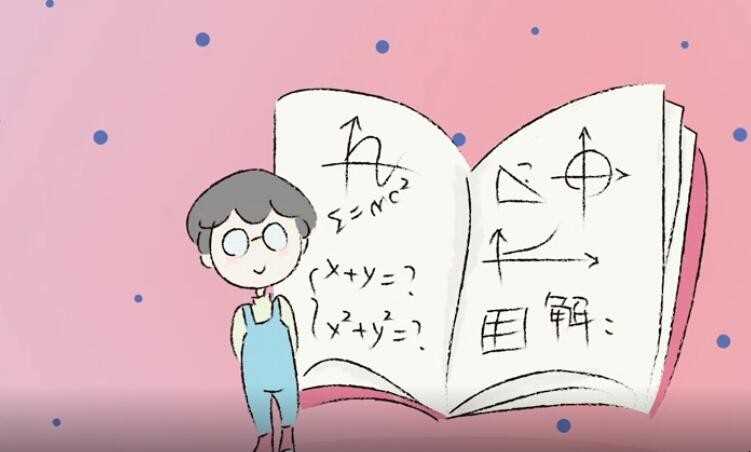 Σ=mc²
x+y=?
x²+y²=?
解: